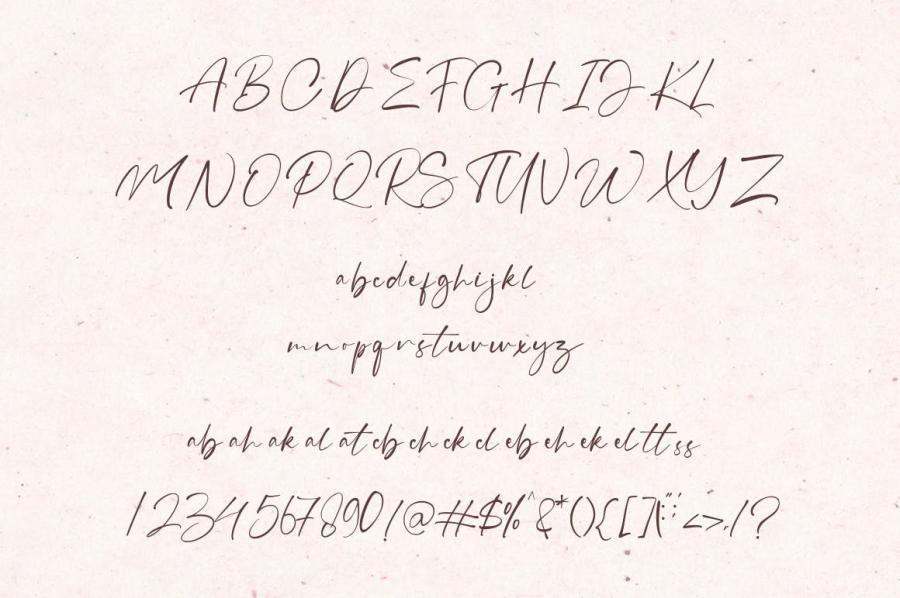 ABCDEFGHIJKL
MNOPQRSTUVWXYZ
abcdefghijkl
mnopqrstuvwxyz
ab ah ak al at cb ch ck cl eb eh ek el tt ss
1234567890!@#$%^&*(){[]|:;"'<>,./?